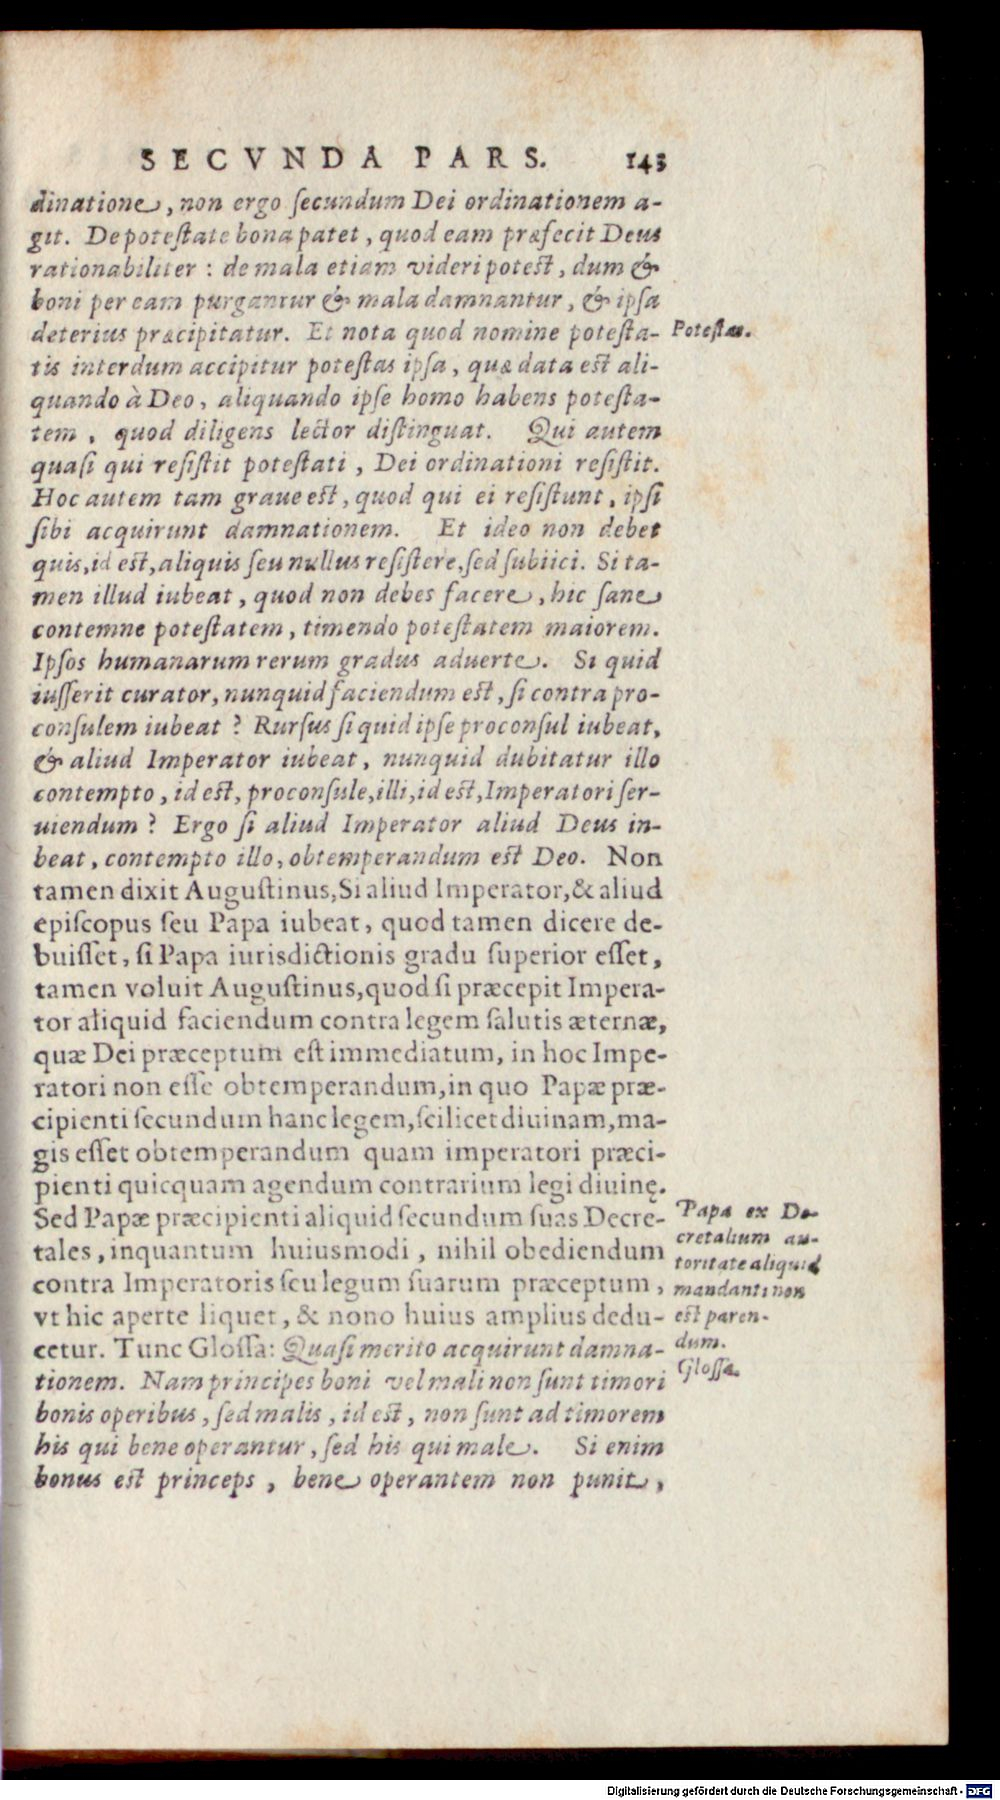 SECVNDA PARS. 143
dinatione, non ergo ſecundum Dei ordinationem a-
git. De poteſtate bona patet, quod eam præfecit Deus
rationabiliter: de mala etiam videri poteſt, dum &
boni per eam purgantur & mala damnantur, & ipſa
deterius præcipitatur. Et nota quod nomine poteſta-
Poteſtas.
tis interdum accipitur poteſtas ipſa, quæ data eſt ali-
quando à Deo, aliquando ipſe homo habens poteſta-
tem, quod diligens lector diſtinguat. Qui autem
quaſi qui reſiſtit poteſtati, Dei ordinationi reſiſtit.
Hoc autem tam graue eſt, quod qui ei reſiſtunt, ipſi
ſibi acquirunt damnationem. Et ideo non debet
quis, id eſt, aliquis ſeu nullus reſiſtere, ſed ſubiici. Si ta-
men illud iubeat, quod non debes facere, hic ſane
contemne poteſtatem, timendo poteſtatem maiorem.
Ipſos humanarum rerum gradus aduerte. Si quid
iuſſerit curator, nunquid faciendum eſt, ſi contra pro-
conſulem iubeat? Rurſus ſi quid ipſe proconſul iubeat,
& aliud Imperator iubeat, nunquid dubitatur illo
contempto, id eſt, proconſule, illi, id eſt, Imperatori ſer-
uiendum? Ergo ſi aliud Imperator aliud Deus in-
beat, contempto illo, obtemperandum eſt Deo. Non
tamen dixit Auguſtinus, Si aliud Imperator, & aliud
epiſcopus ſeu Papa iubeat, quod tamen dicere de-
buiſſet, ſi Papa iurisdictionis gradu ſuperior eſſet,
tamen voluit Auguſtinus, quod ſi præcepit Impera-
tor aliquid faciendum contra legem ſalutis æternæ,
quæ Dei præceptum eſt immediatum, in hoc Impe-
ratori non eſſe obtemperandum, in quo Papæ præ-
cipienti ſecundum hanc legem, ſcilicet diuinam, ma-
gis eſſet obtemperandum quam imperatori præci-
pienti quicquam agendum contrarium legi diuinę.
Sed Papæ præcipienti aliquid ſecundum ſuas Decre-
tales, inquantum huiusmodi, nihil obediendum
contra Imperatoris ſeu legum ſuarum præceptum,
vt hic aperte liquet, & nono huius amplius dedu-
cetur. Tunc Gloſſa: Quaſi merito acquirunt damna-
tionem. Nam principes boni vel mali non ſunt timori
bonis operibus, ſed malis, id eſt, non ſunt ad timorem
his qui bene operantur, ſed his qui male. Si enim
bonus eſt princeps, bene operantem non punit,
Papa ex De-
cretalium au-
toritate aliquid
mandanti non
eſt paren-
dum.
Gloſſa.
Digitalisierung gefördert durch die Deutsche Forschungsgemeinschaft - DFG